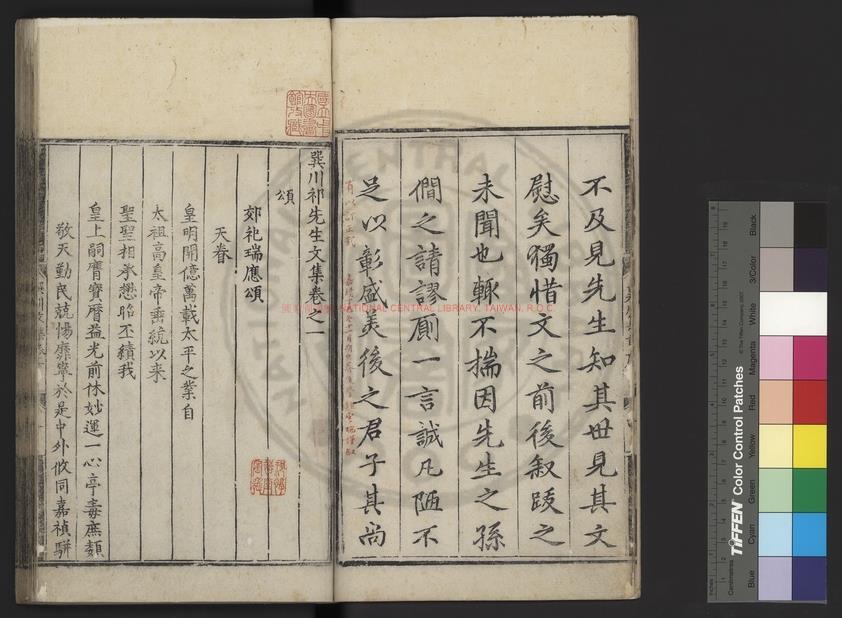 不及見先生知其世見其文
慰矣獨惜文之前後叙跋之
未聞也輙不揣因先生之孫
僩之請謬廁一言誠凡陋不
足以彰盛美後之君子其尚
有以訂正
巽川祁先生文集卷之一
頌
郊祀瑞應頌
天眷
皇明開億萬載太平之業自
太祖高皇帝垂統以来
聖聖相承懋昭丕績我
皇上嗣膺寶曆益光前休妙運一心亭毒庶類
敬天勤民兢惕靡寧於是中外攸同嘉禎駢
NATIONAL CENTRAL LIBRARY, TAIWAN, R.O.C.
TIFFEN Color Control Patches
© The Tiffen Company, 2007
Inches
Centimetres
Blue
Cyan
Green
Yellow
Red
Magenta
White
3/Color
Black